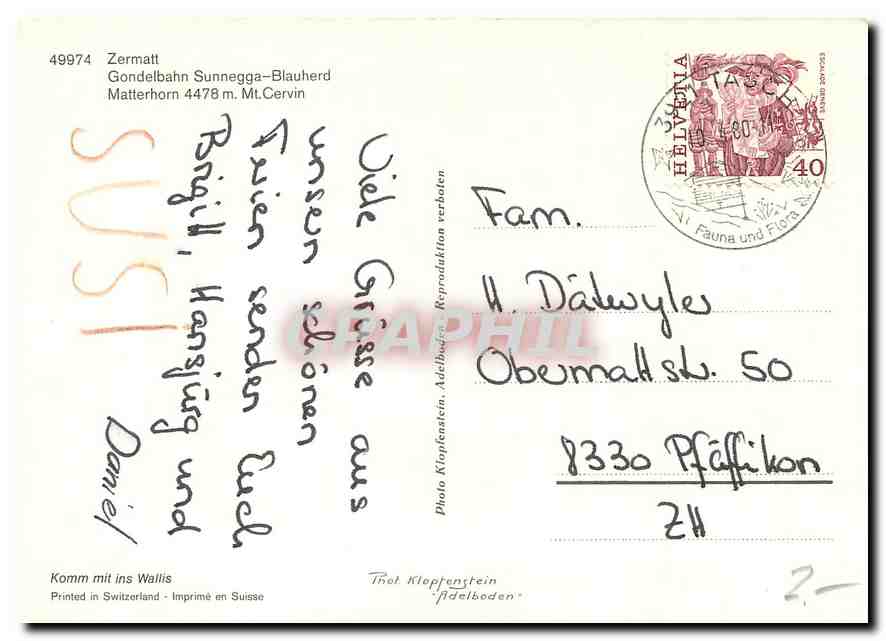 49974 Zermatt
Gondelbahn Sunnegga-Blauherd
Matterhorn 4478 m. Mt. Cervin
Viele Grüsse aus
unsern schönen
Ferien senden Euch
Birgitt, Hansjürg und
Daniel
SUSI
Photo Klopfenstein, Adelboden - Reproduktion verboten
HELVETIA
ESCALADE GENÈVE
40
TÄSCH
80
Fauna und Flora
Fam.
H. Dätwyler
Obermattstr. 50
8330 Pfäffikon
ZH
CPAPHIL
Komm mit ins Wallis
Printed in Switzerland - Imprimé en Suisse
Phot. Klopfenstein
"Adelboden"
2.-